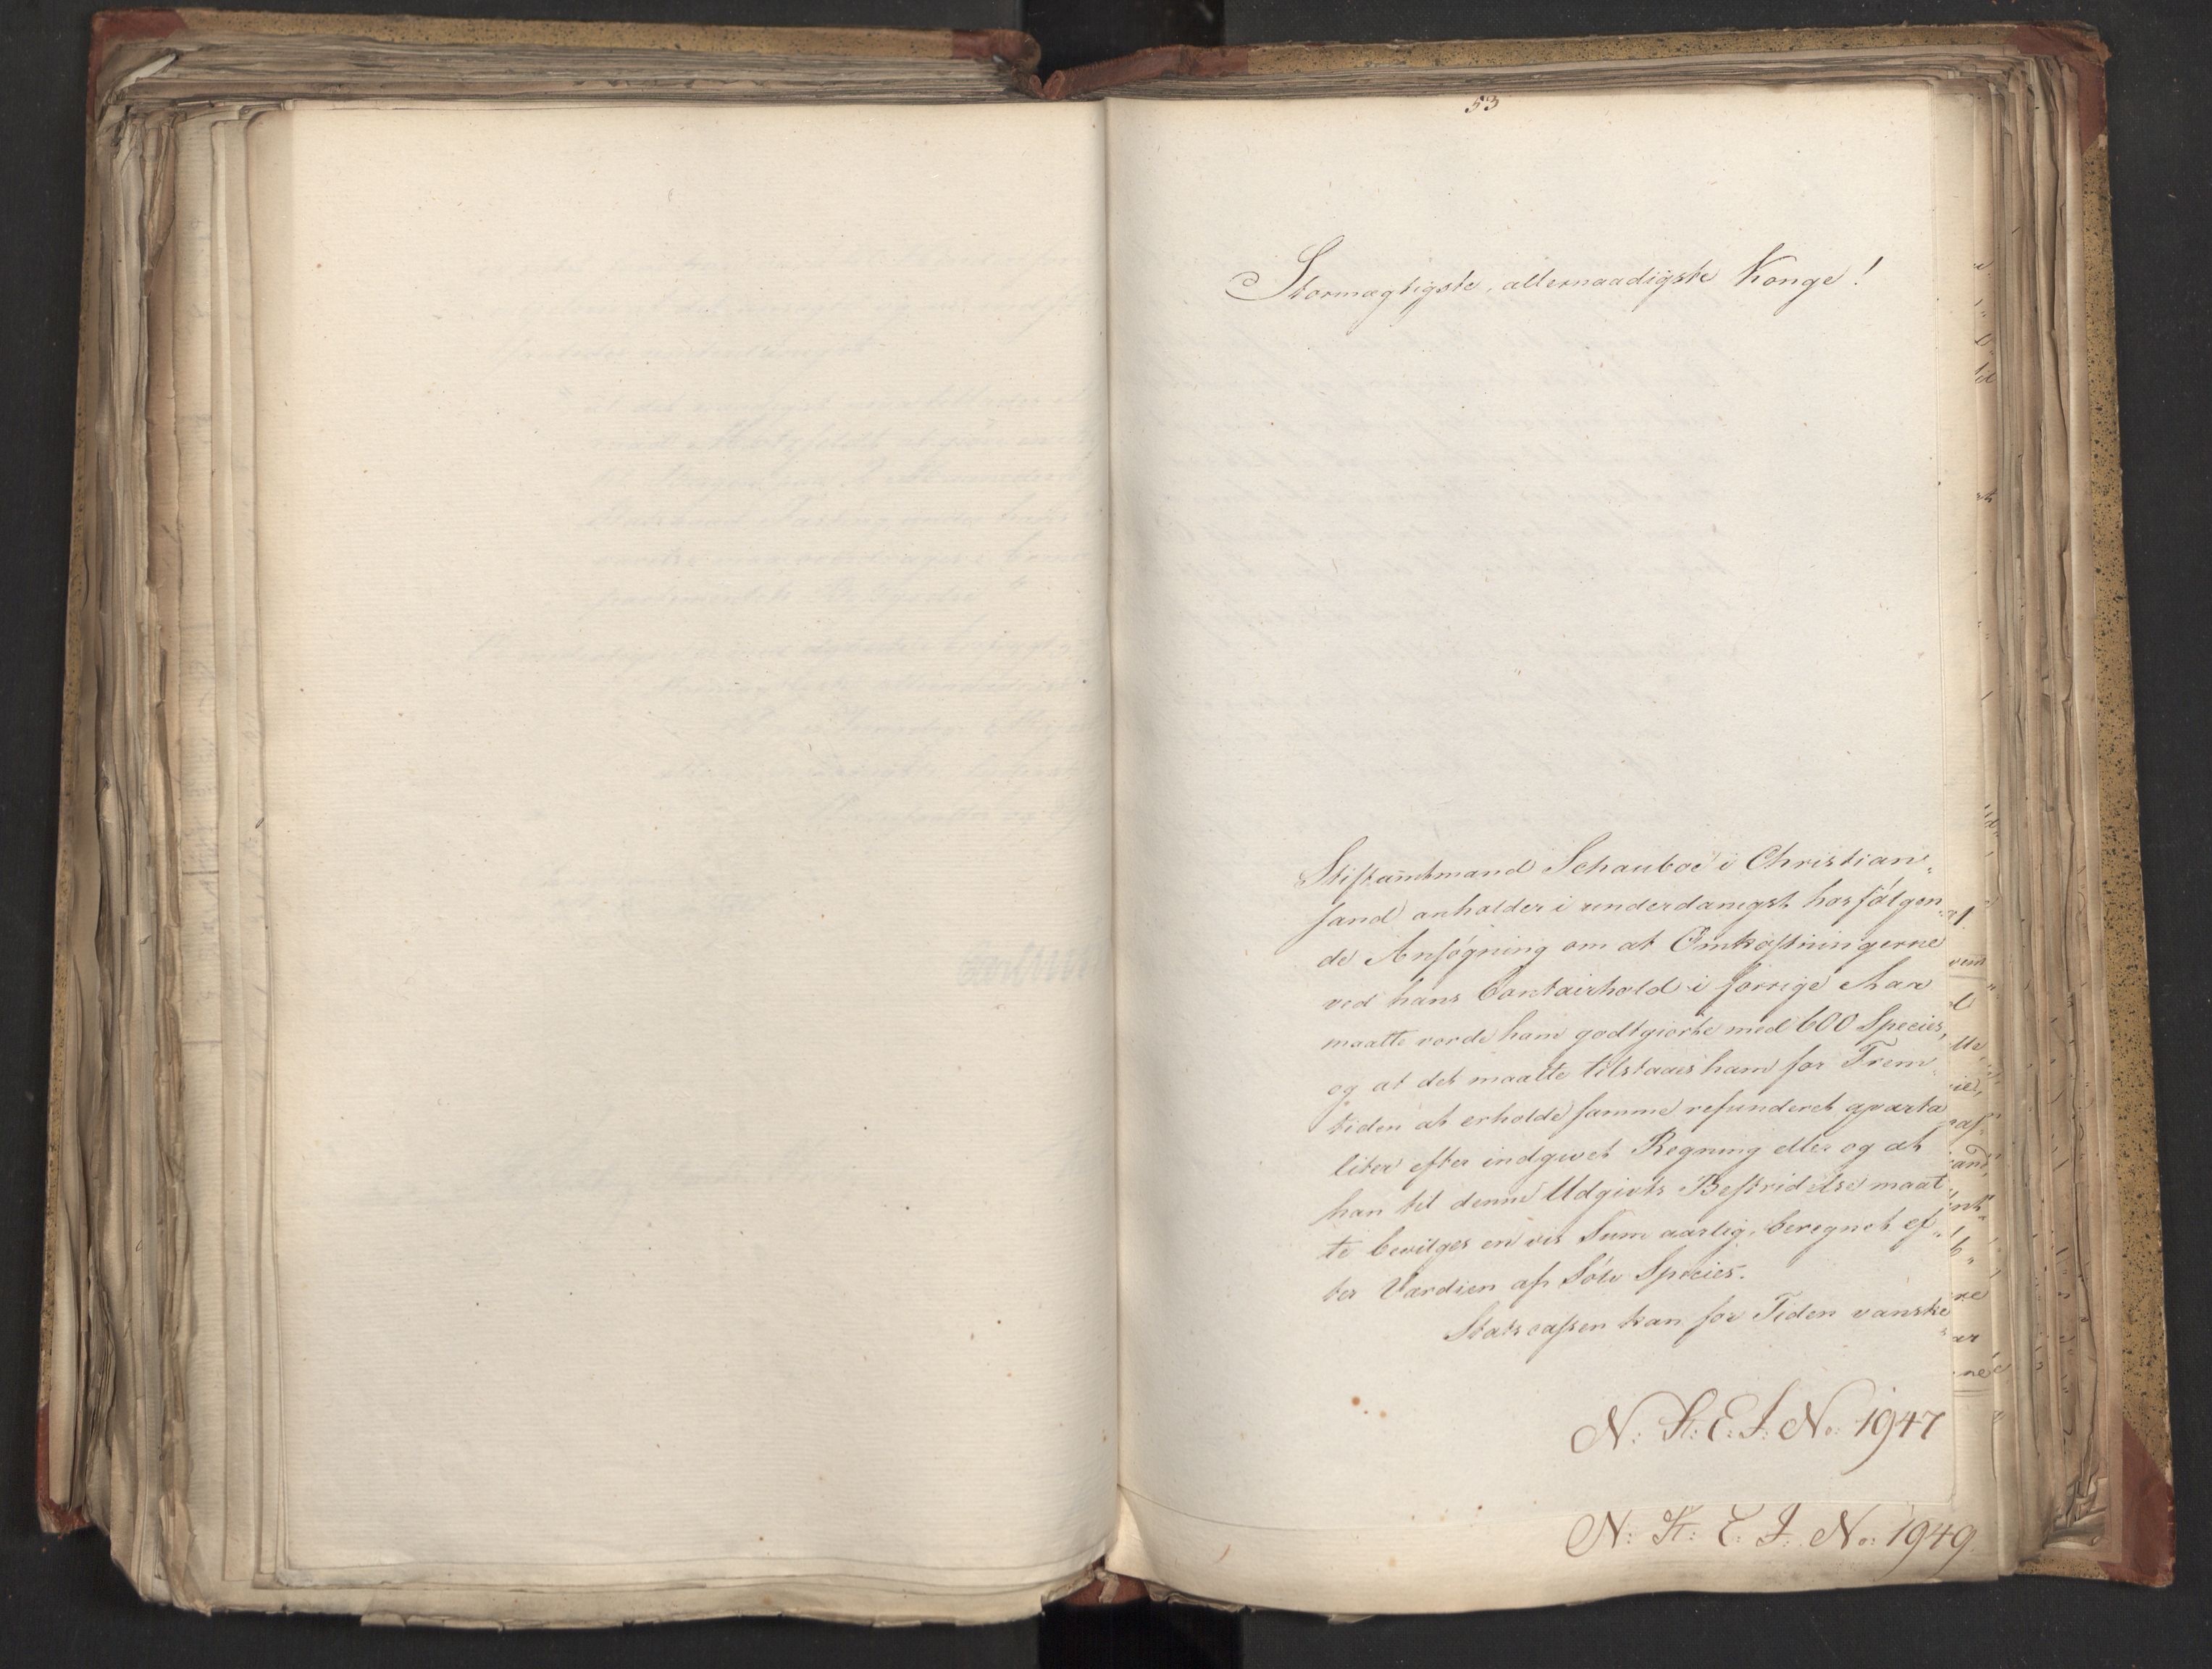 53
Stormægtigste, allernaadigste Konge!
Stiftamtmand Schouboe i Christian„
sand anholder i underdanigst hosfølgen„
de Ansøgning om at Omkostningerne
ved hans Contoirhold i forrige Aar
maatte vorde ham godtgiorte med 600 Species,
og at det maatte tilstaaes ham for Frem„
tiden at erholde samme refunderet qvarta„
liter efter indgivet Regning eller og at
han til denne Udgivts Bestridelse maat„
te bevilges en vis Sum aarlig, beregnet ef„
ter Værdien af Sølv Species.
Statscassen kan for Tiden vanske„
N: St: E: I: No: 1947
N: St: E: I: No: 1949